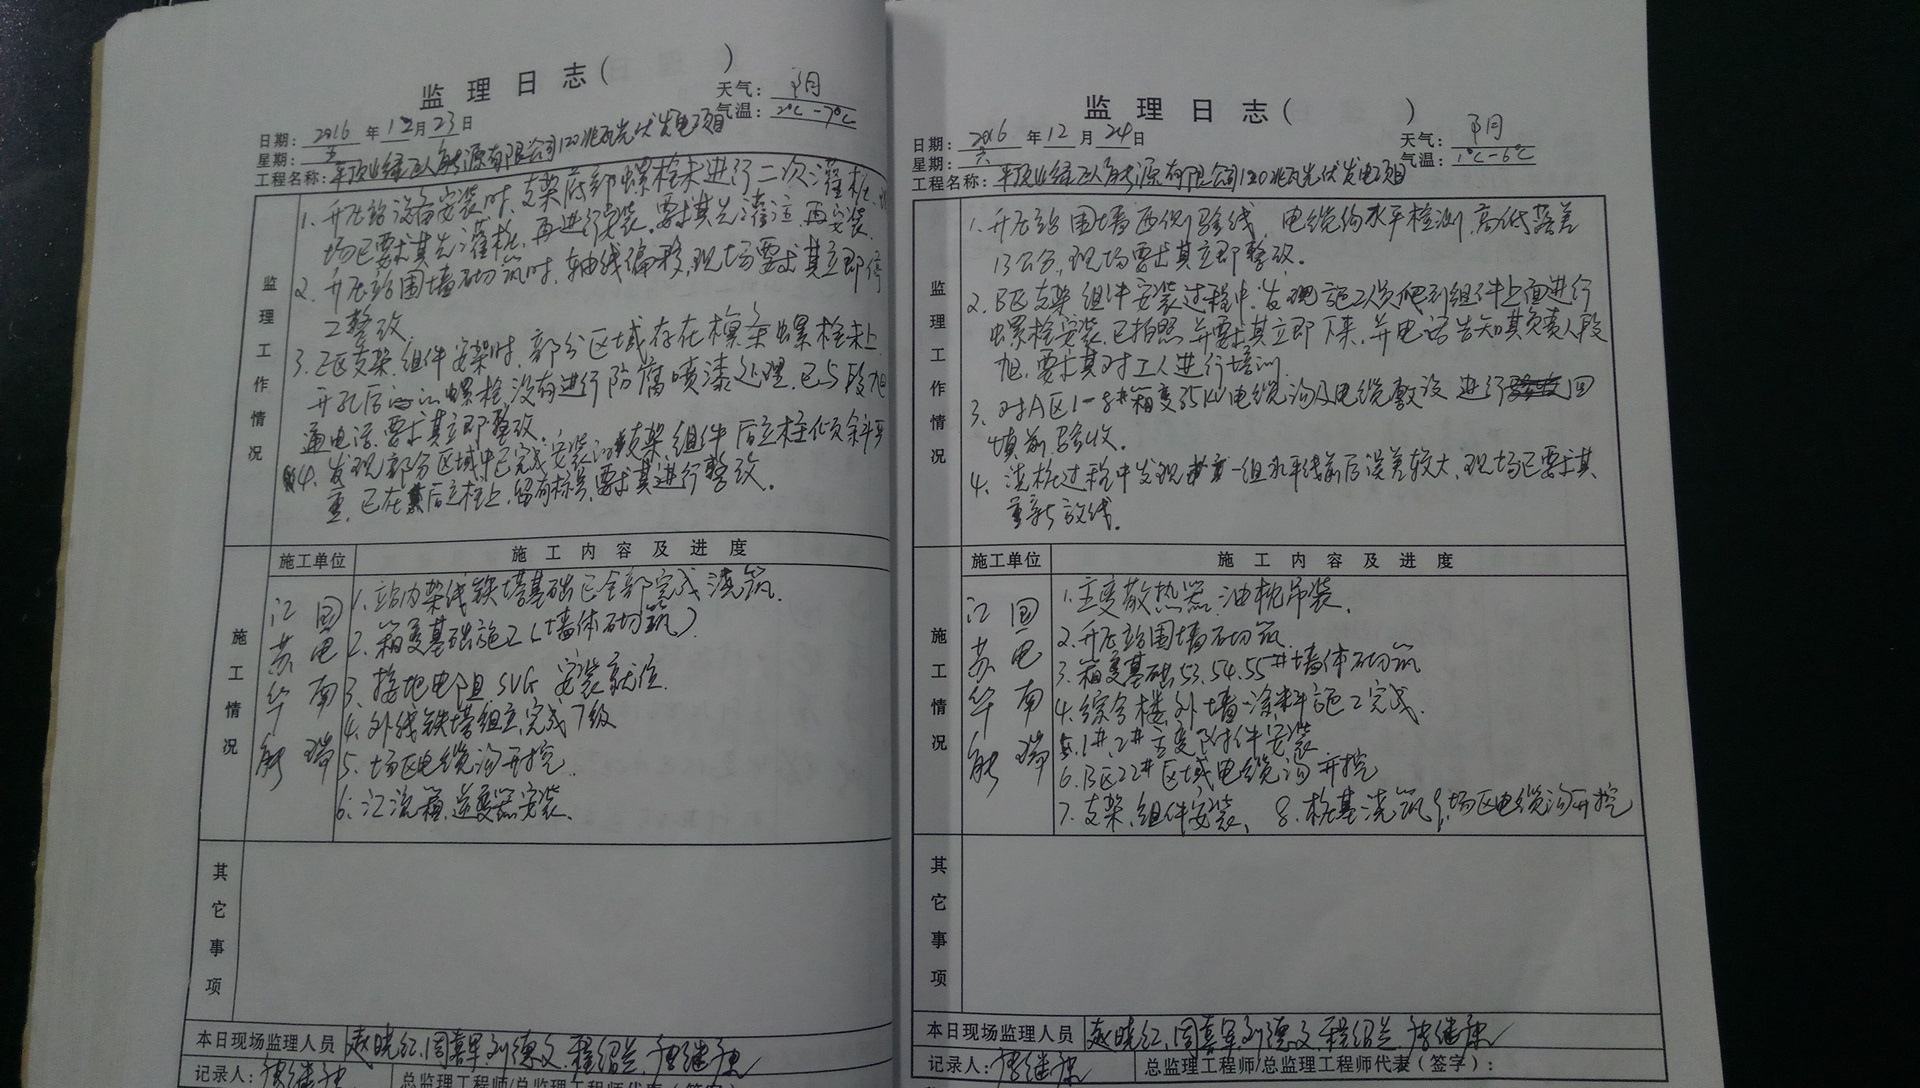 监理日志（ ）
天气：阴
日期：2016年12月23日
气温：2℃-7℃
星期：五
工程名称：平顶山绿正人能源有限公司120兆瓦光伏发电项目
监理工作情况
1. 开压站设备安装时，支架底部螺栓未进行二次灌桩，
场已要求其先灌桩，再进行安装。要求其先灌注，再安装.
2. 开压站围墙砌筑时，轴线偏移，现场要求其立即停
工整改
3. E区支架、组件安装时，部分区域存在檩条螺栓未上
开孔后的螺栓没有进行防腐喷漆处理，已与段旭
通电话要求其立即整改.
4. 发现部分区域中已完成安装的支架组件后立柱倾斜严
重，已在后立柱上，留有标号，要求其进行整改。
施工单位
施工内容及进度
施工情况
江苏华能
国电南瑞
1. 站内架线铁塔基础已全部完成浇筑.
2. 箱变基础施工（墙体砌筑）
3. 接地电阻SVG安装就位.
4. 外线铁塔组立完成7级
5. 场区电缆沟开挖.
6. 汇流箱，逆变器安装.
其它事项
本日现场监理人员 赵晓红，周喜军，刘德文，程绍兰，唐继康
记录人：唐继康
总监理工程师/总监理工程师代表（签字）
监理日志（ ）
日期：2016年12月24日
天气：阴
星期：六
气温：1℃-6℃
工程名称：平顶山绿正人能源有限公司120兆瓦光伏发电项目
监理工作情况
1. 开压站围墙西侧验线，电缆沟水平检测，高低误差
13公分，现场要求其立即整改。
2. B区支架组件安装过程中，发现施工人员爬到组件上面进行
螺栓安装，已拍照，并要求其立即下来，并电话告知其负责人段
旭，要求其对工人进行培训.
3. 对A区1-8#箱变35KV电缆沟及电缆敷设进行回
填前验收。
4. 浇桩过程中发现一组水平线前后误差较大，现场已要求其
重新放线.
施工单位
施工内容及进度
施工情况
江苏华能
国电南瑞
1. 主变散热器，油枕吊装.
2. 开压站围墙砌筑.
3. 箱变基础53.54.55#墙体砌筑
4. 综合楼外墙涂料施工完成.
5. 1#.2#主变附件安装
6. B区22#区域电缆沟开挖
7. 支架、组件安装、 8. 桩基浇筑 9. 场区电缆沟开挖
其它事项
本日现场监理人员 赵晓红，周喜军，刘德文，程绍兰，唐继康
记录人：唐继康
总监理工程师/总监理工程师代表（签字）：